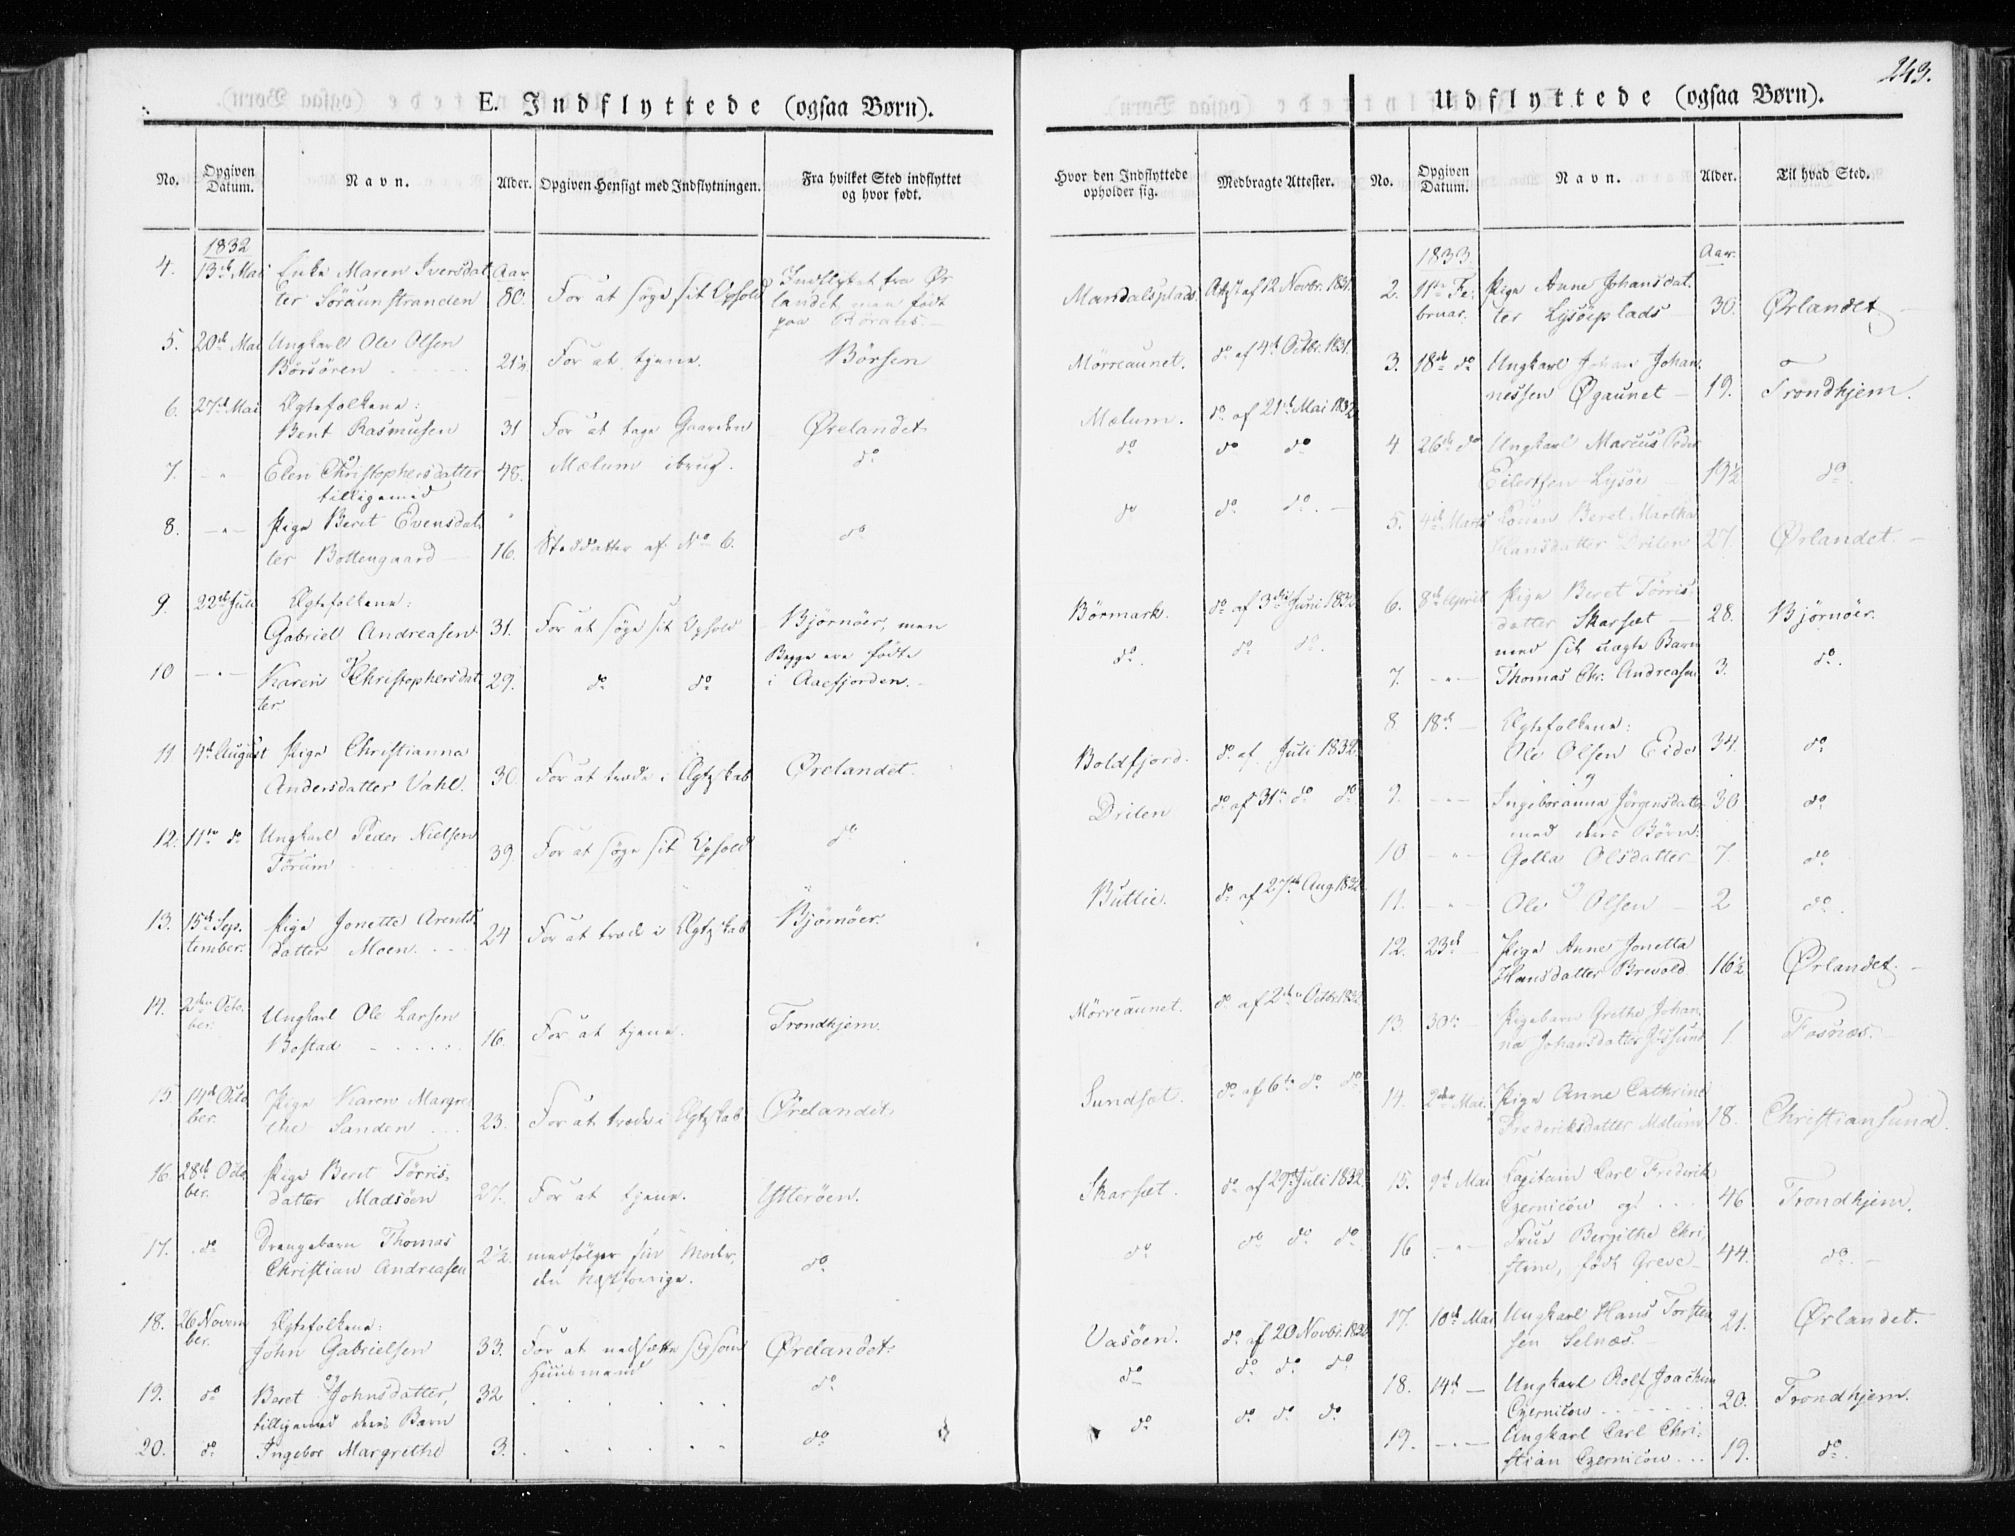 243.
E. Indflyttede (ogsaa Børn).
No. Opgiven Datum. Navn. Alder. Opgiven Hensigt med Indflytningen. Fra hvilket Sted indflyttet og hvor født.
1832
4. 13de Mai Enke Maren Iversdat Aar Indflyttet fra Ør
ter 80. For at søge sit Ophold landet men født
paa
5. 20de Mai Ungkarl Ole Olsen
Börsören 21½ For at tjene. Börsen
6. 27de Mai Ægtefolkene:
Bent Rasmusen 31 For at tage Gaarden Ørelandet
7. -"- Elen Christophersdatter 48. Mælum i brug. do
tilligemed
8. -"- Pige Beret Evensdat
ter Bottengaard 16. Steddatter af No 6. do
9. 22de Juli Ægtefolkene:
Gabriel Andreasen 31. For at søge sit Ophold Bjørnöer, men
Begge ere födte
10 -"- Karen Christophersdat 29. do do i Aaefjorden.
ter
11. 4de August Pige Christianna
Andersdatter Vahl. 30. For at træde i Ægteskab Ørelandet.
12. 11te do Ungkarl Peder Nielsen
Törum 39. For at søge sit Ophold do
13. 15de Sep- Pige Jonette Arents
tember. datter Moen. 24 For at træde i Ægteskab Bjørnöer.
14. 2den Octo-
ber. Ungkarl Ole Larsen
Bostad 16. For at tjene. Trondhjem.
15 14de Octo Pige Karen Margre
ber. the Sanden 23. For at træde i Ægteskab Ørelandet
16. 28de Octo Pige Beret Törris
ber. datter Madsöen 27. For at tjene. Ytteröen.
17. do Drengebarn Thomas
Christian Andreasen 2½ medfölger sin Moder, do
den næstforrige.
18. 26 Novem Ægtefolkene:
ber. John Gabrielsen 33. For at nedsætte sig som Ørelandet
Huusmand
19. do Beret Johnsdatter, 32 do
tilligemed deres Barn
20. do Ingebor Margrethe 3. do
Udflyttede (ogsaa Børn).
Hvor den Indflyttede opholder sig. Medbragte Attester. No. Opgiven Datum. Navn. Alder. Til hvad Sted.
1833. Aar.
Mandalsplads. Attest af 12 Novbr. 1831. 2. 11te Fe- Pige Anne Johansdat
bruar. ter Lysöeplads 30. Ørlandet
Mörreaunet. do af 4de Octbr. 1831. 3. 18de do Ungkarl Johan Johan
nessen Øgaunet 19. Trondhjem.
Mælum. do af 21de Mai 1832
do do do 4 26de do Ungkarl Marcus Peder
Eilertsen Lysöe 19½ do.
do do do. 5. 4de Marts Konen Beret Martha
Hansdatter Drilen 27. Ørlandet.
Börmark. do af 3die Juni 1832 6. 8de April Pige Beret Törris
datter Skarsæt 28. Bjørnöer.
do. do do. med sit uægte Barn
7. -"- Thomas Chr. Andreasen 3. do.
8. 18de - Ægtefolkene:
Boldfjord. do af Juli 1832. Ole Olsen Eide 34. do
Drilen do af 31te do do 9. -"- Ingeboranna Jörgensdatter 30 do
med deres Børn:
10 -"- Golla Olsdatter 7. do
Buttie. do af 27de Aug 1832 11. -"- Ole Olsen 2 do.
12. 23de - Pige Anne Jonetta
Hansdatter Brevold 16½ Ørlandet.
Mörreaunet. do af 2den Octbr. 1832 13. 30te - Pigebarn Grethe Johan
na Johansdatter Jössund 1. Fosnæs.
Sundset. do af 6te do do 14. 2den Mai. Pige Anne Cathrine
Frederiksdatter Mælum 18. Christiansund.
Skarsæt. do af 29de Juli 1832. 15. 9de Mai Kapitain Carl Frederik
Czernicow og 46 Trondhjem.
do do do do 16 -"- Frue Bergithe Chri-
stine, født Greve 44. do.
17. 10de Mai Ungkarl Hans Torsten
Vasöen. do af 20 Novbr. 1832 sen Selnæs. 21. Ørlandet.
do do do do 18. 14de - Ungkarl Rolf Joachim
Czernicow 20. Trondhjem.
do do do do 19. -"- Ungkarl Carl Chri-
stian Czernicow 19. do.